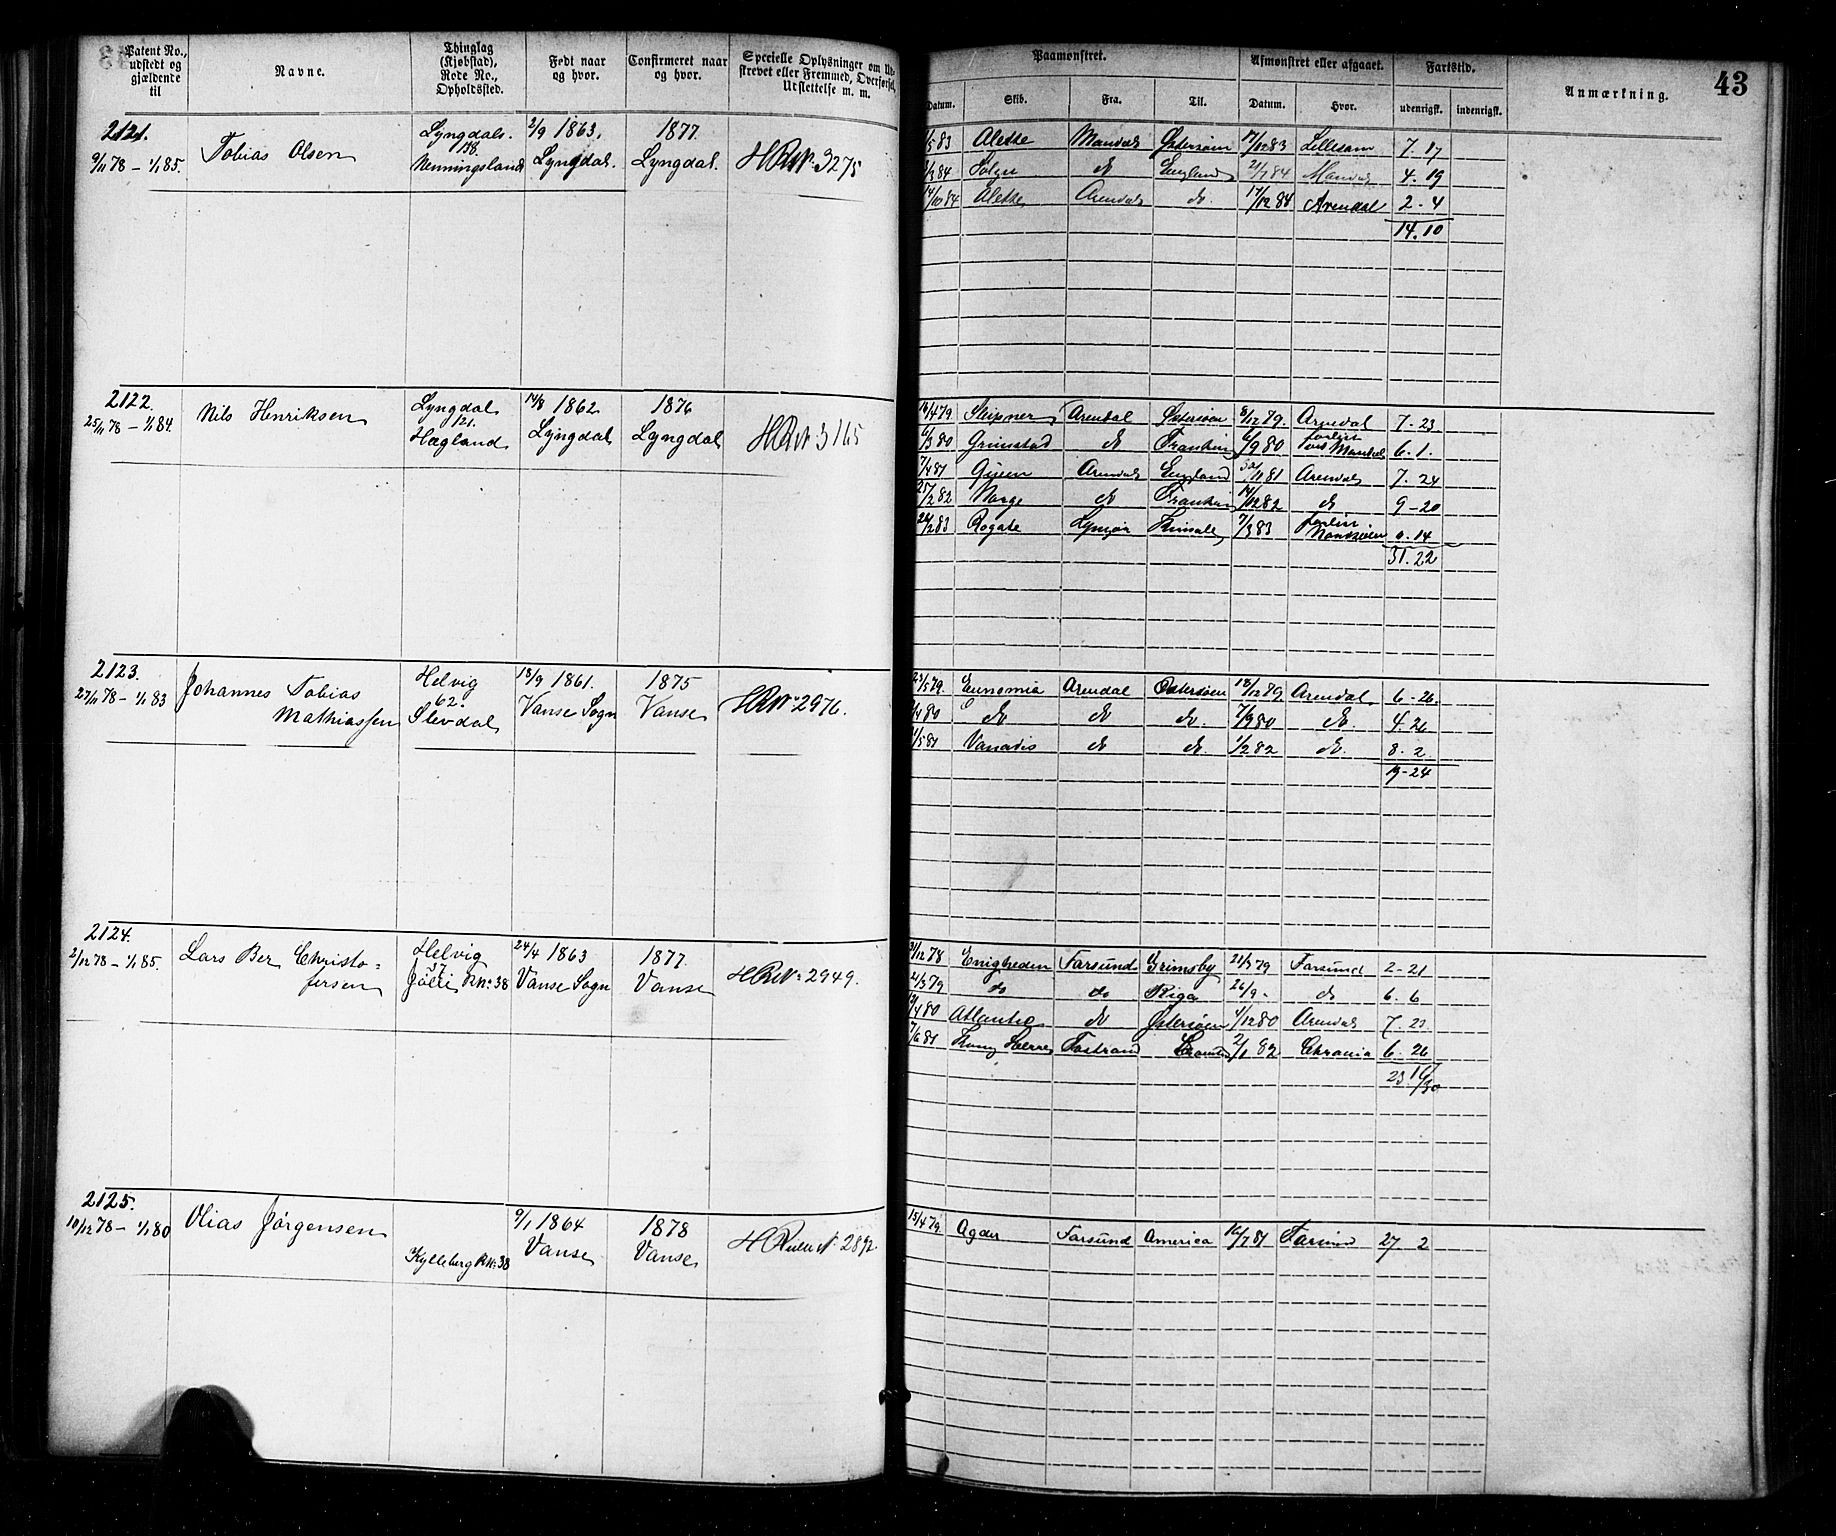 Patent No., udstedt og gjældende til
Navne.
Thinglag (Kjøbstad), Rode No., Opholdssted.
Født naar og hvor.
Confirmeret naar og hvor.
Specielle Oplysninger om Udskrevet eller Fremmed, Overførsel, Udslettelse m. m.
Paamønstret.
Afmønstret eller afgaaet.
Fartstid.
Anmærkning.
43
Datum. Skib. Fra. Til. Datum. Hvor. udenrigsk. indenrigsk.
2121. Lyngdals. 2/9 1863. 1877.
9/11 78 – 1/1 85. Tobias Olsen 118 Lyngdal. Lyngdal. HR No. 3275
Nenningsland
/5 83 Alette Mandal Østersøen 17/12 83 Lillesand 7. 17
/3 84 Solgu do England 21/7 84 Mandal 4. 19
14/10 84 Alette Arendal do. 17/12 84 Arendal 2 - 4
14. 10
2122. Lyngdal 14/8 1862. 1876
25/11 78 – 1/1 84. Nils Henriksen 121. Lyngdal Lyngdal HR No 3165
Hægland
16/4 79 Skipner Arendal Østersøen 8/12 79. Arendal 7 - 23
6/3 80 Grimstad do Frankrig 6/9 80 forlist ved Mandal 6. 1.
7/4 81 Arendal England 30/11 81 Arendal 7. 24
25/2 82 Norge do Frankrig 14/12 82 do 9 - 20
22/2 83 Rogate Lyngør 7/3 83 forlist 0. 14
31. 22
2123. Helvig 18/9 1861. 1875
27/11 78 – 1/1 83 Johannes Tobias Mathiassen 62. Vanse Sogn Vanse HR No. 2976.
Slevdal
23/5 79. Eunomia Arendal Østersøen 18/12 79. Arendal. 6 - 26.
/4 80 do do do. 7/9 80 do. 4. 26
/5 81 Vanadis do do. 1/2 82 do. 8. 2.
19 - 24
2124. Helvig 24/4 1863 1877.
2/12 78 – 1/1 85. Lars Ber Christofersen 37 Vanse Sogn Vanse HR No. 2949.
Jølle R No. 38
31/12 78 Enigheden Farsund Grimsby 21/3 79 Farsund 2 - 21
2/3 79 do do Riga 26/9 - do 6. 6
19/4 80 Atlantic do Østersøen 4/12 80 Arendal 7. 23
7/6 81 Kong Sverre Fastrand 2/1 82 Chrania 6. 26
23 16/30
2125. 9/1 1864 1878
10/12 78 – 1/1 80 Olias Jørgensen Vanse Vanse H Rulle No. 2892
Kylleberg R No. 38
15/4 79 Agder Farsund America 16/7 81 Farsund 27 2